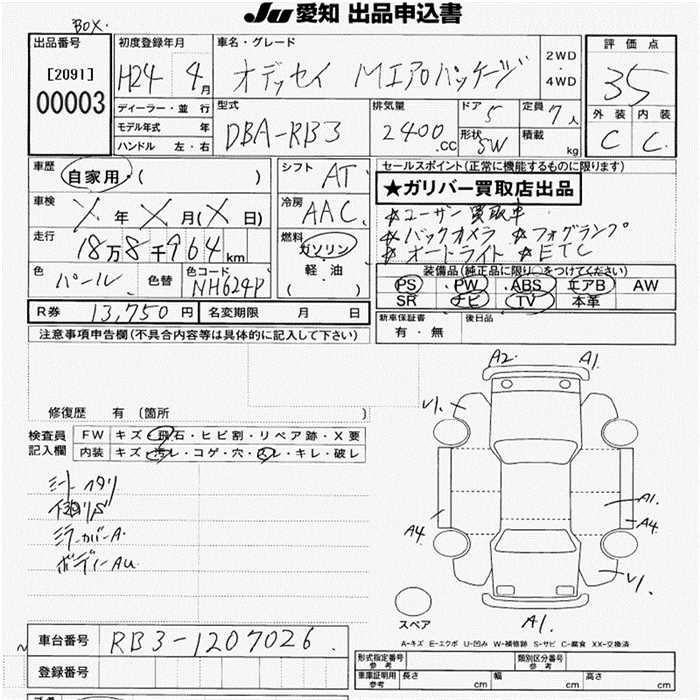 BOX.
JU 愛知 出品申込書
出品番号
[2091]
00003
初度登録年月
H24 4月
ディーラー・並 行
モデル年式 年
ハンドル 左・右
車名・グレード
オデッセイ Mエアロパッケージ
2WD
4WD
型式
DBA-RB3
排気量
2400.CC
ドア 5
形状 SW
定員 7人
積載 kg
評価点
35
外装 内装
C C.
車歴
自家用・( )
車検
X年X月(X日)
走行
18万8千964km
色
パール
色替
色コード
NH624P
シフト
AT
冷房
AAC
燃料
ガソリン
軽・油
( )
セールスポイント(正常に機能するものに限ります)
★ガリバー買取店出品
☆ユーザー買取車
☆バックカメラ ☆フォグランプ
☆オートライト ☆ETC
装備品(純正品に限り○をつけてください)
PS PW ABS エアB AW
SR ナビ TV 本革
R券 13,750円
名変期限 月 日
新車保証書
有・無
後日品
注意事項申告欄(不具合内容等は具体的に記入して下さい)
修復歴 有 (箇所 )
検査員
記入欄
FW キズ・飛石・ヒビ割・リペア跡・X要
内装 キズ・汚レ・コゲ・穴・スレ・キレ・破レ
シートヘタリ
下廻リサビ
ミラーカバーA
ボディーAU
A2. A1.
V1.
A1.
A4
A4
V1.
A1.
スペア
A-キズ E-エクボ U-凹み W-補修跡 S-サビ C-腐食 XX-交換済
車台番号 RB3-1207026
登録番号
形式指定番号
参考
類別区分番号
参考
車庫証明用
参考
長さ cm 幅 cm 高さ cm